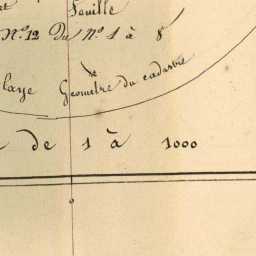 Feuille
N.º 12 Du N.º 1 à 8
Géomètre du cadastre
de 1 à 1000